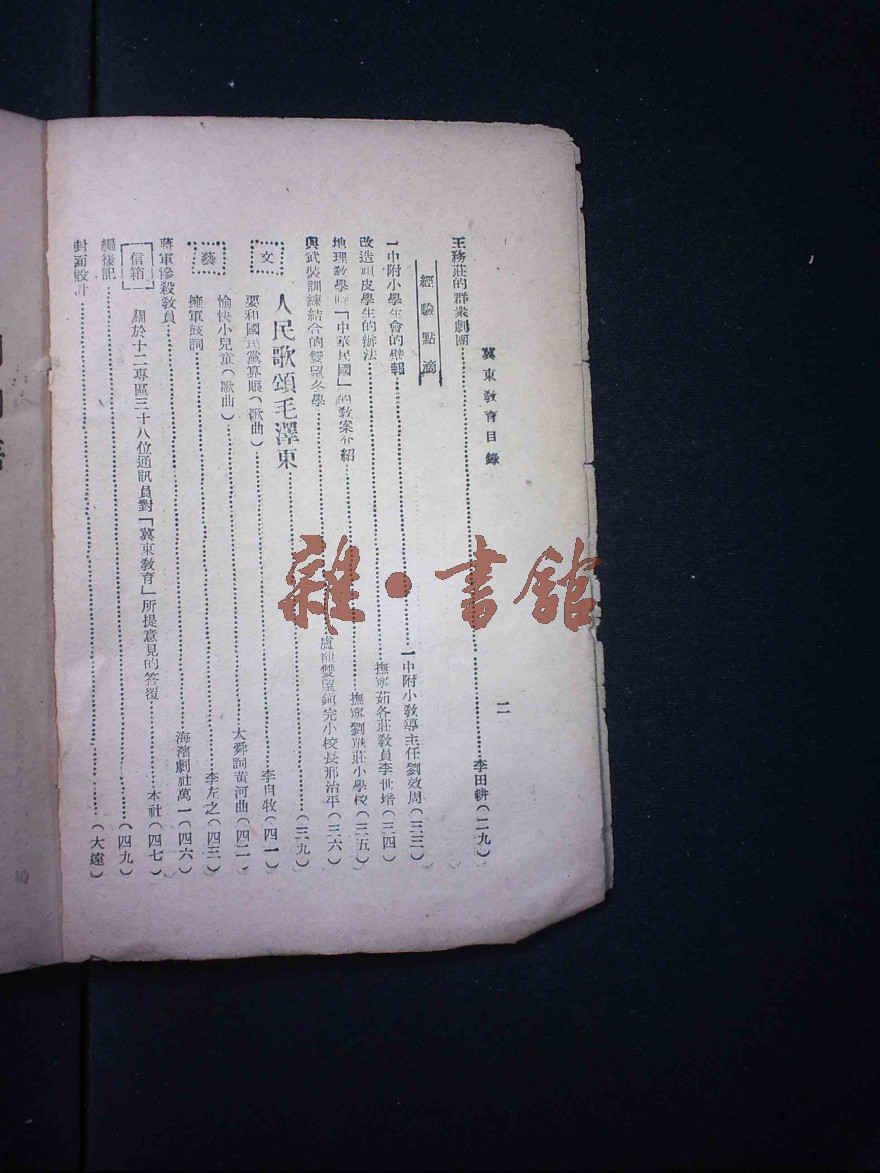 冀東教育目錄
二
王務莊的群衆劇團……李田耕(二九)
經驗點滴
一中附小學生會的壁報……一中附小教導主任劉效周(三三)
改造頑皮學生的辦法……撫寧茹各莊教員李世增(三四)
地理教學「中華民國」的教案介紹……撫寧劉莊小學校(三五)
與武裝訓練結合的雙望冬學……盧龍雙望鎮完小校長邢治平(三六)
人民歌頌毛澤東……(三九)
文藝
要和國民黨算賬(歌曲)……李自牧(四一)
愉快小兒童(歌曲)……大舜詞黄河曲(四二)
擁軍鼓詞……李左之(四三)
蔣軍慘殺教員……海濱劇社萬一(四六)
信箱
關於十二專區三十八位通訊員對「冀東教育」所提意見的答覆……本社(四七)
編後記……(四九)
封面設計……(大遠)
雜·書館